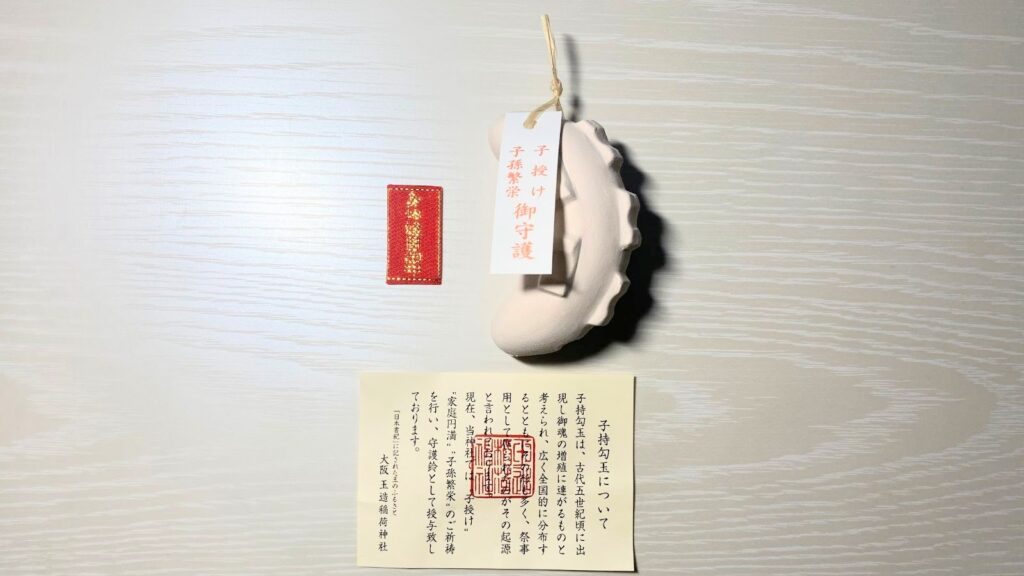 子授け
子孫繁栄
御守護
子持勾玉について
子持勾玉は、古代五世紀頃に出
現し御魂の増殖に連がるものと
考えられ、広く全国的に分布す
るとともに多く、祭事
用としてがその起源
と言われ
現在、当神社では"子授け"
"家庭円満""子孫繁栄"のご祈祷
を行い、守護鈴として授与致し
ております。
「日本書紀」に記された玉のふるさと
大阪 玉造稲荷神社